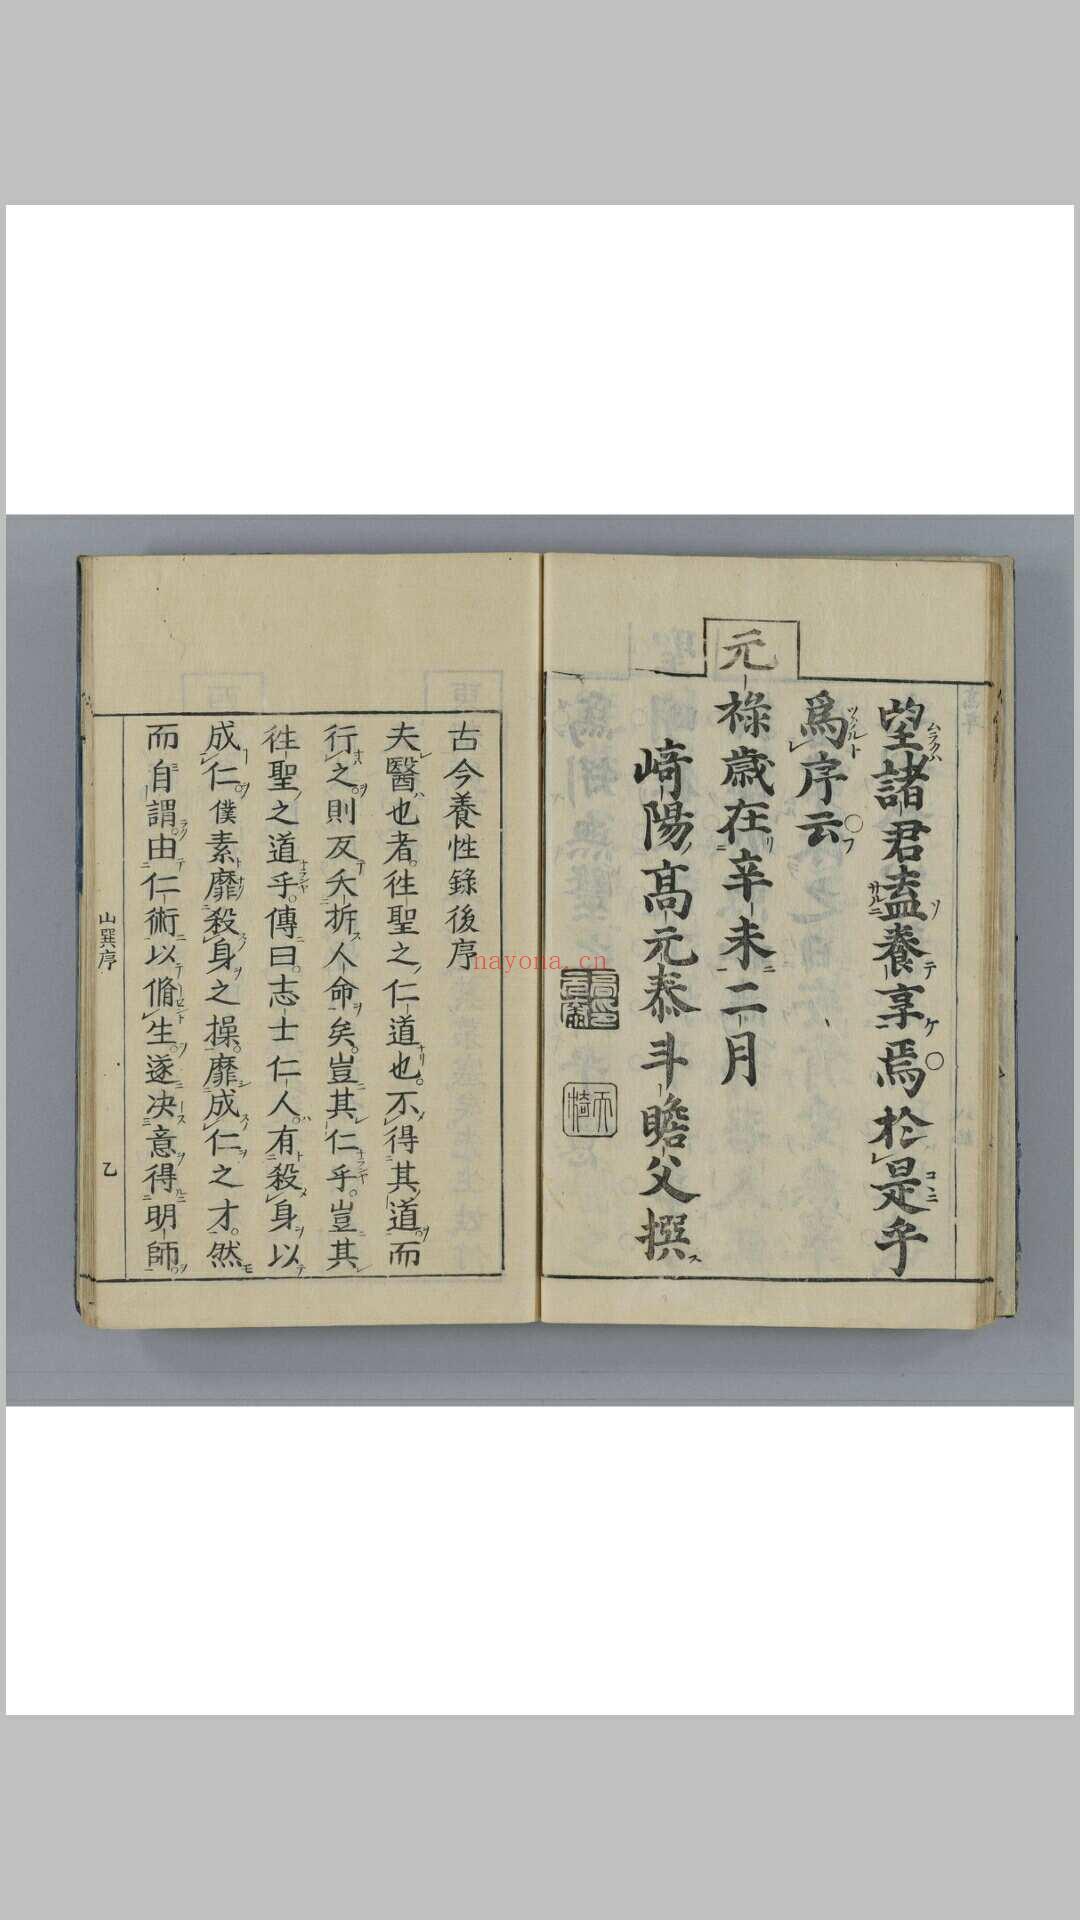 望諸君盍養享焉於是乎
爲序云
元祿歲在辛未二月
崎陽高元泰斗瞻父撰
古今養性錄後序
夫醫也者徃聖之仁道也不得其道而
行之則反夭折人命矣豈其仁乎豈其
徃聖之道乎傳曰志士仁人有殺身以
成仁僕素靡殺身之操靡成仁之才然
而自謂由仁術以脩生遂決意得明師
山巽序
乙
nayona.cn